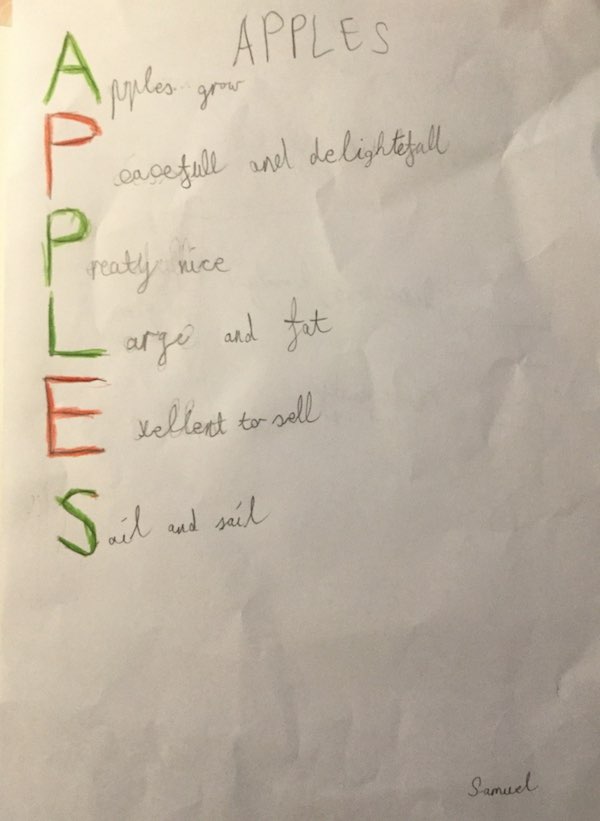 APPLES
Apples grow
Peacefull and delightefall
Preatly nice
Large and fat
Exellent to sell
Sail and sail
Samuel